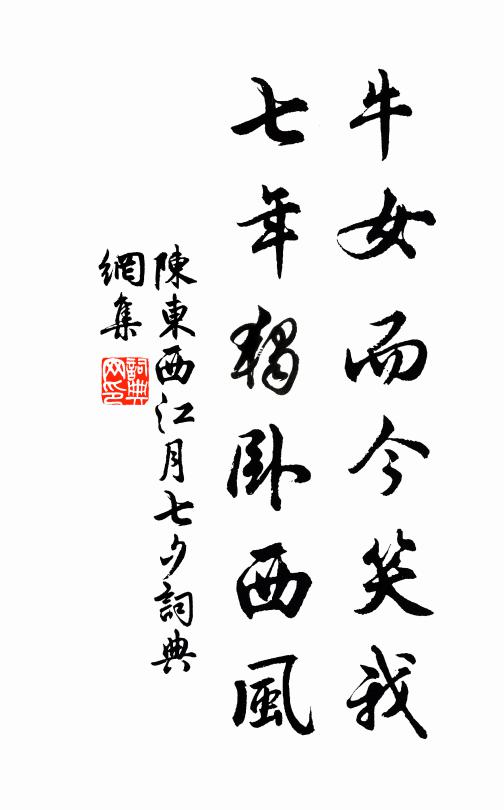 牛女而今笑我
七年獨卧西風
陳東西江月七夕詞典
網集
詞典
网印